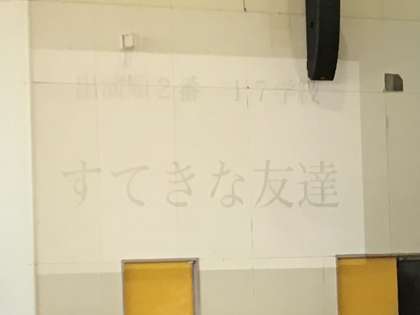 出演順２番
すてきな友達